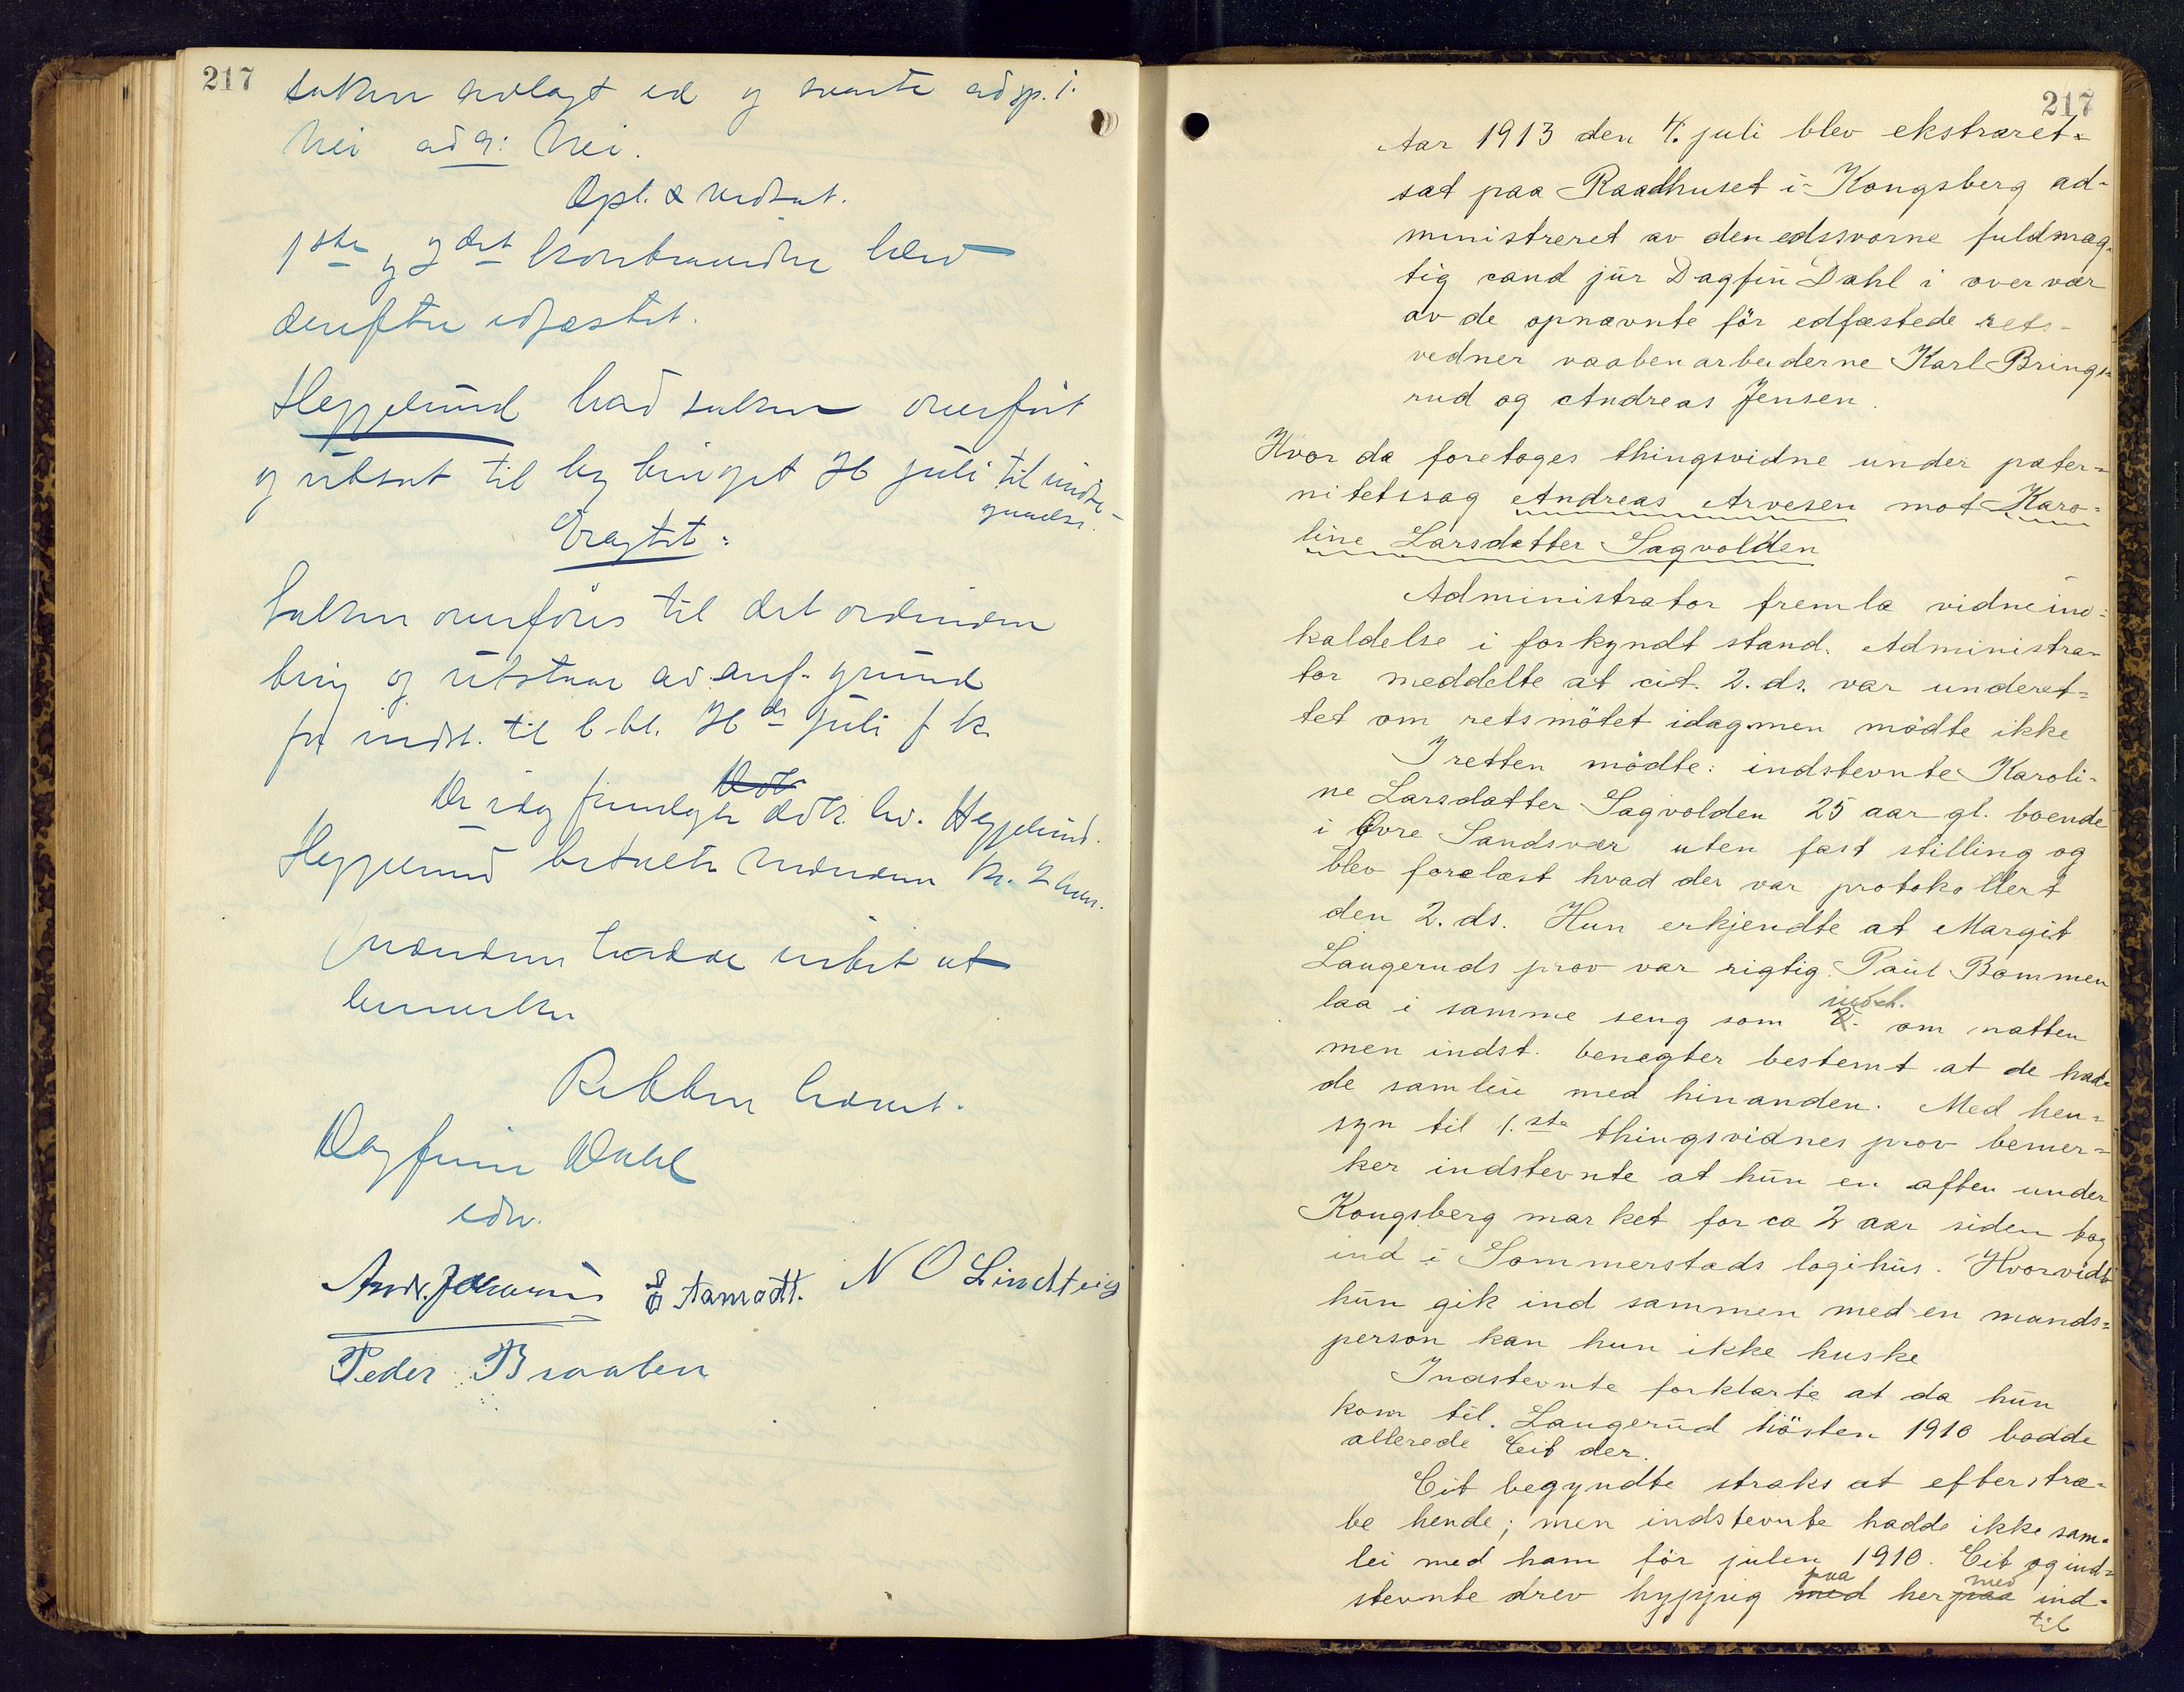 217
saken avlagt ed og svarte ad sp. 1:
Nei ad 9: Nei.
Opl. & vedtat.
1ste og 2det blev
derefter edfæstet.
Heggelund bad saken overført
og utsat til by tinget 16 juli til undta-
gnaelse.
Eragtet:
Saken overføres til det ordinære
ting og utstaar av anf. grund
fra indst. til b. bl. 16de juli f k.
De idag fremlagte dok. lev. Heggelund.
Heggelund betalte mændene kr. 2 hver.
Mændene hadde intet at
bemerke
Retten hævet.
Dagfinn Dahl
edsv.
Andr. Johannes E Aamodt. N O Lindteig
Peder Braaten
217
Aar 1913 den 4. juli blev ekstraret-
sat paa Raadhuset i Kongsberg ad-
ministreret av den edssvorne fuldmæg-
tig cand jur Dagfin Dahl i overvær
av de opnævnte før edfæstede rets-
vedner vaabenarbeiderne Karl Brings-
rud og Andreas Jensen.
Hvor da foretoges thingsvidne under pater-
nitetssag Andreas Arvesen mot Karo-
line Larsdatter Sagvolden
Administrator fremla vidneind-
kaldelse i forkyndt stand. Administra-
tor meddelte at cit. 2. ds. var underet-
tet om retsmötet idag men mödte ikke
I retten mödte: indstevnte Karoli-
ne Larsdatter Sagvolden 25 aar gl. boende
i Øvre Sandsvær uten fast stilling og
blev forelæst hvad der var protokollert
den 2. ds. Hun erkjendte at Margit
Laugeruds prov var rigtig. Paul Bommen
laa i samme seng som indst. om natten
men indst. benegter bestemt at de had-
de samleie med hinanden. Med hen-
syn til 1.ste thingsvidnes prov bemer-
ker indstevnte at hun en aften under
Kongsberg market for ca 2 aar siden tog
ind i Sommerstads logihus. Hvorvidt
hun gik ind sammen med en mands-
person kan hun ikke huske
Indstevnte forklarte at da hun
kom til Laugerud hösten 1910 bodde
allerede Cit der.
Cit begyndte straks at efterstræ-
be hende; men indstevnte hadde ikke sam-
lei med ham för julen 1910. Cit og ind-
stevnte drev hyppig med paa her paa med ind-
til